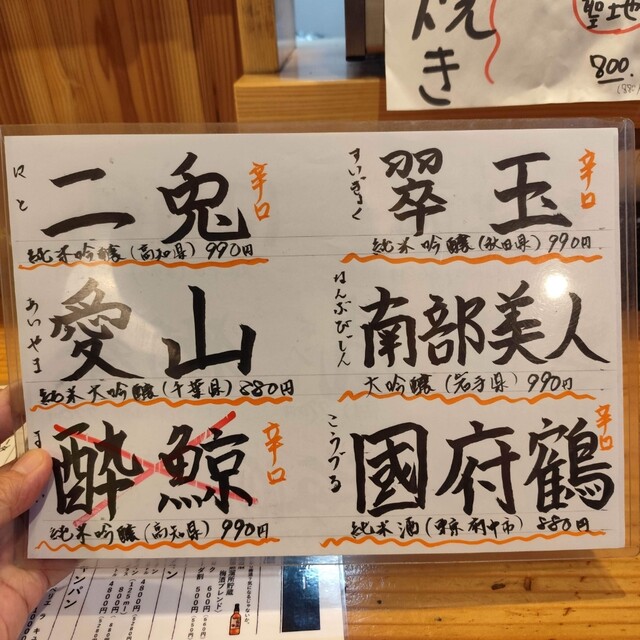 焼き
聖地
800.
にと
二兎
辛口
純米吟醸(高知県)990円
すいぎょく
翠玉
辛口
純米吟醸(秋田県)990円
あいやま
愛山
純米大吟醸(千葉県)880円
なんぶびじん
南部美人
大吟醸(岩手県)990円
酔鯨
辛口
純米吟醸(高知県)990円
こうづる
國府鶴
辛口
純米酒(東京府中市)880円